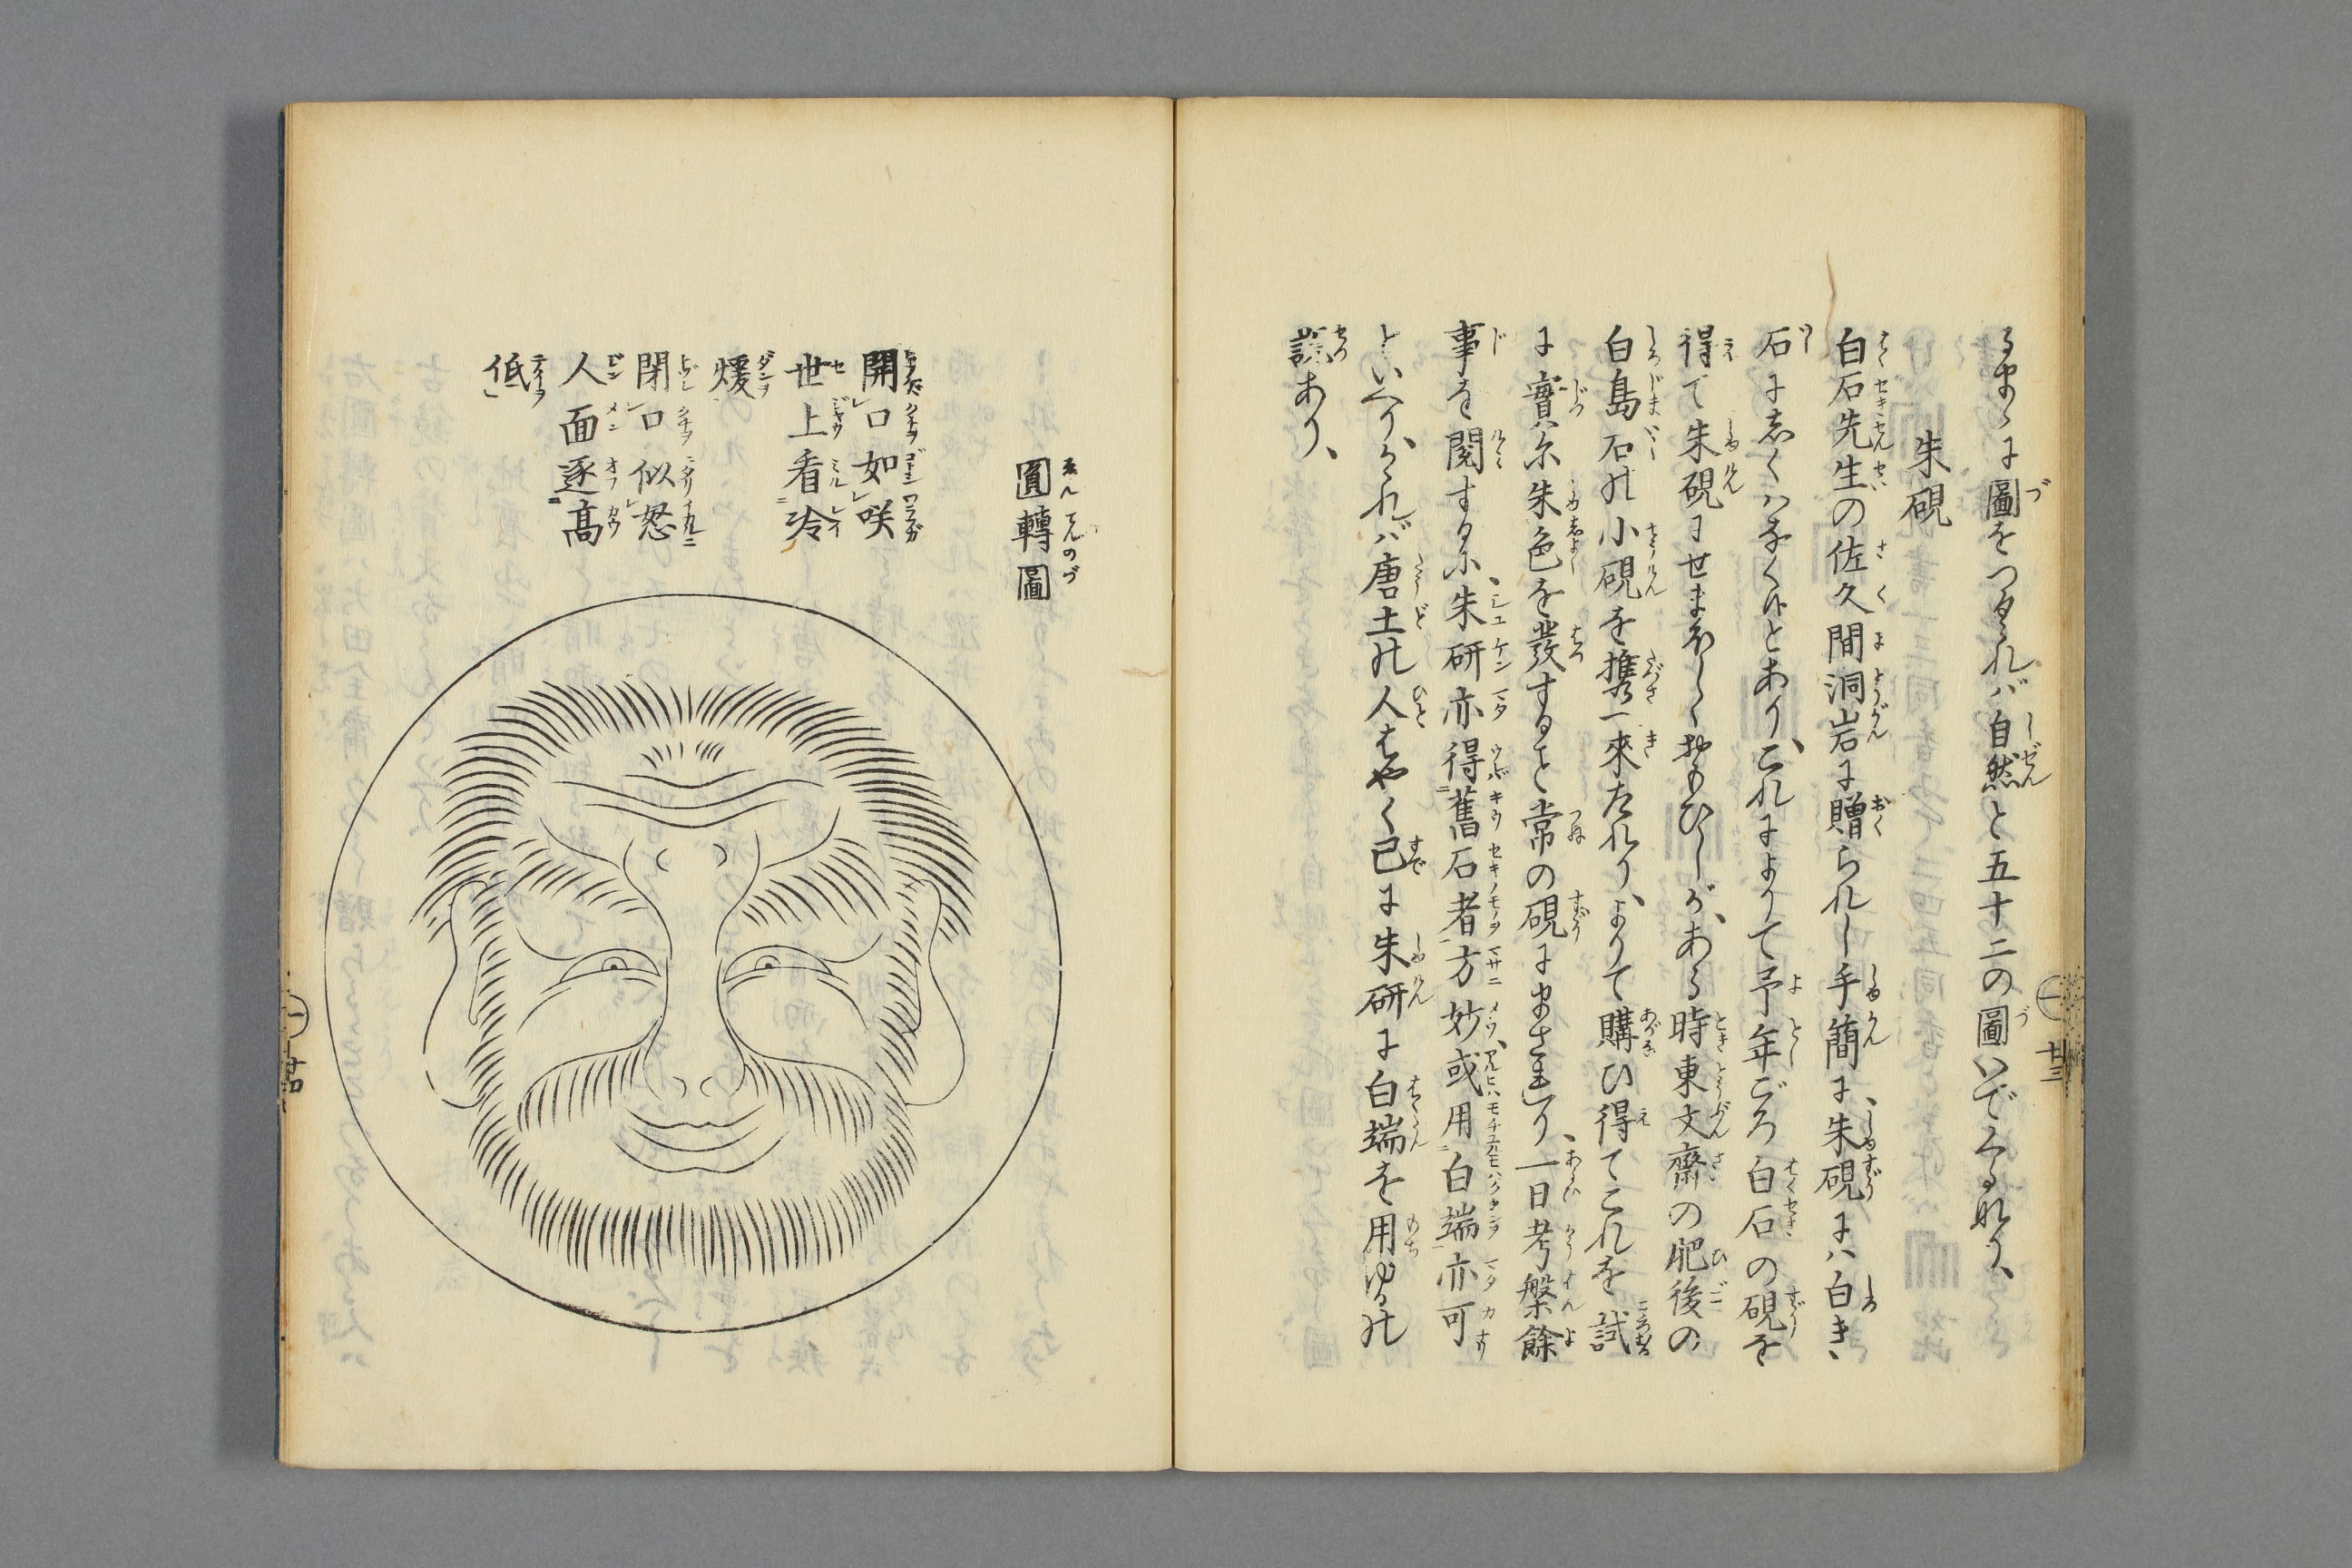 るまゝに圖をつくれバ自然と五十二の圖いでくるなり、
朱硯
白石先生の佐久間洞岩に贈られし手簡に、朱硯にハ白き
石にしくハなく候とあり、これによりて予年ごろ白石の硯を
得て朱硯にせまほしくおもひしが、ある時東文齋の肥後の
白島石の小硯を携へ來たれり、よりて購ひ得てこれを試
に實に尓朱色を發すること常の硯にまされり、一日考槃餘
事を閲するに、朱研亦得舊石者方妙或用白端亦可
といへり、かゝれバ唐土の人はやく已に朱研に白端を用ゆるの
説あり、
圓轉圖
開口如咲
世上看冷
煖
閉口似怒
人面逐高
低